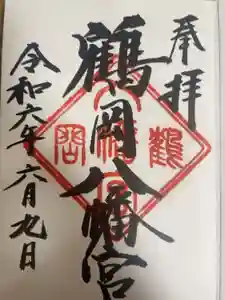 奉拝
鶴岡八幡宮
令和六年六月九日
鶴
岡
八幡宮